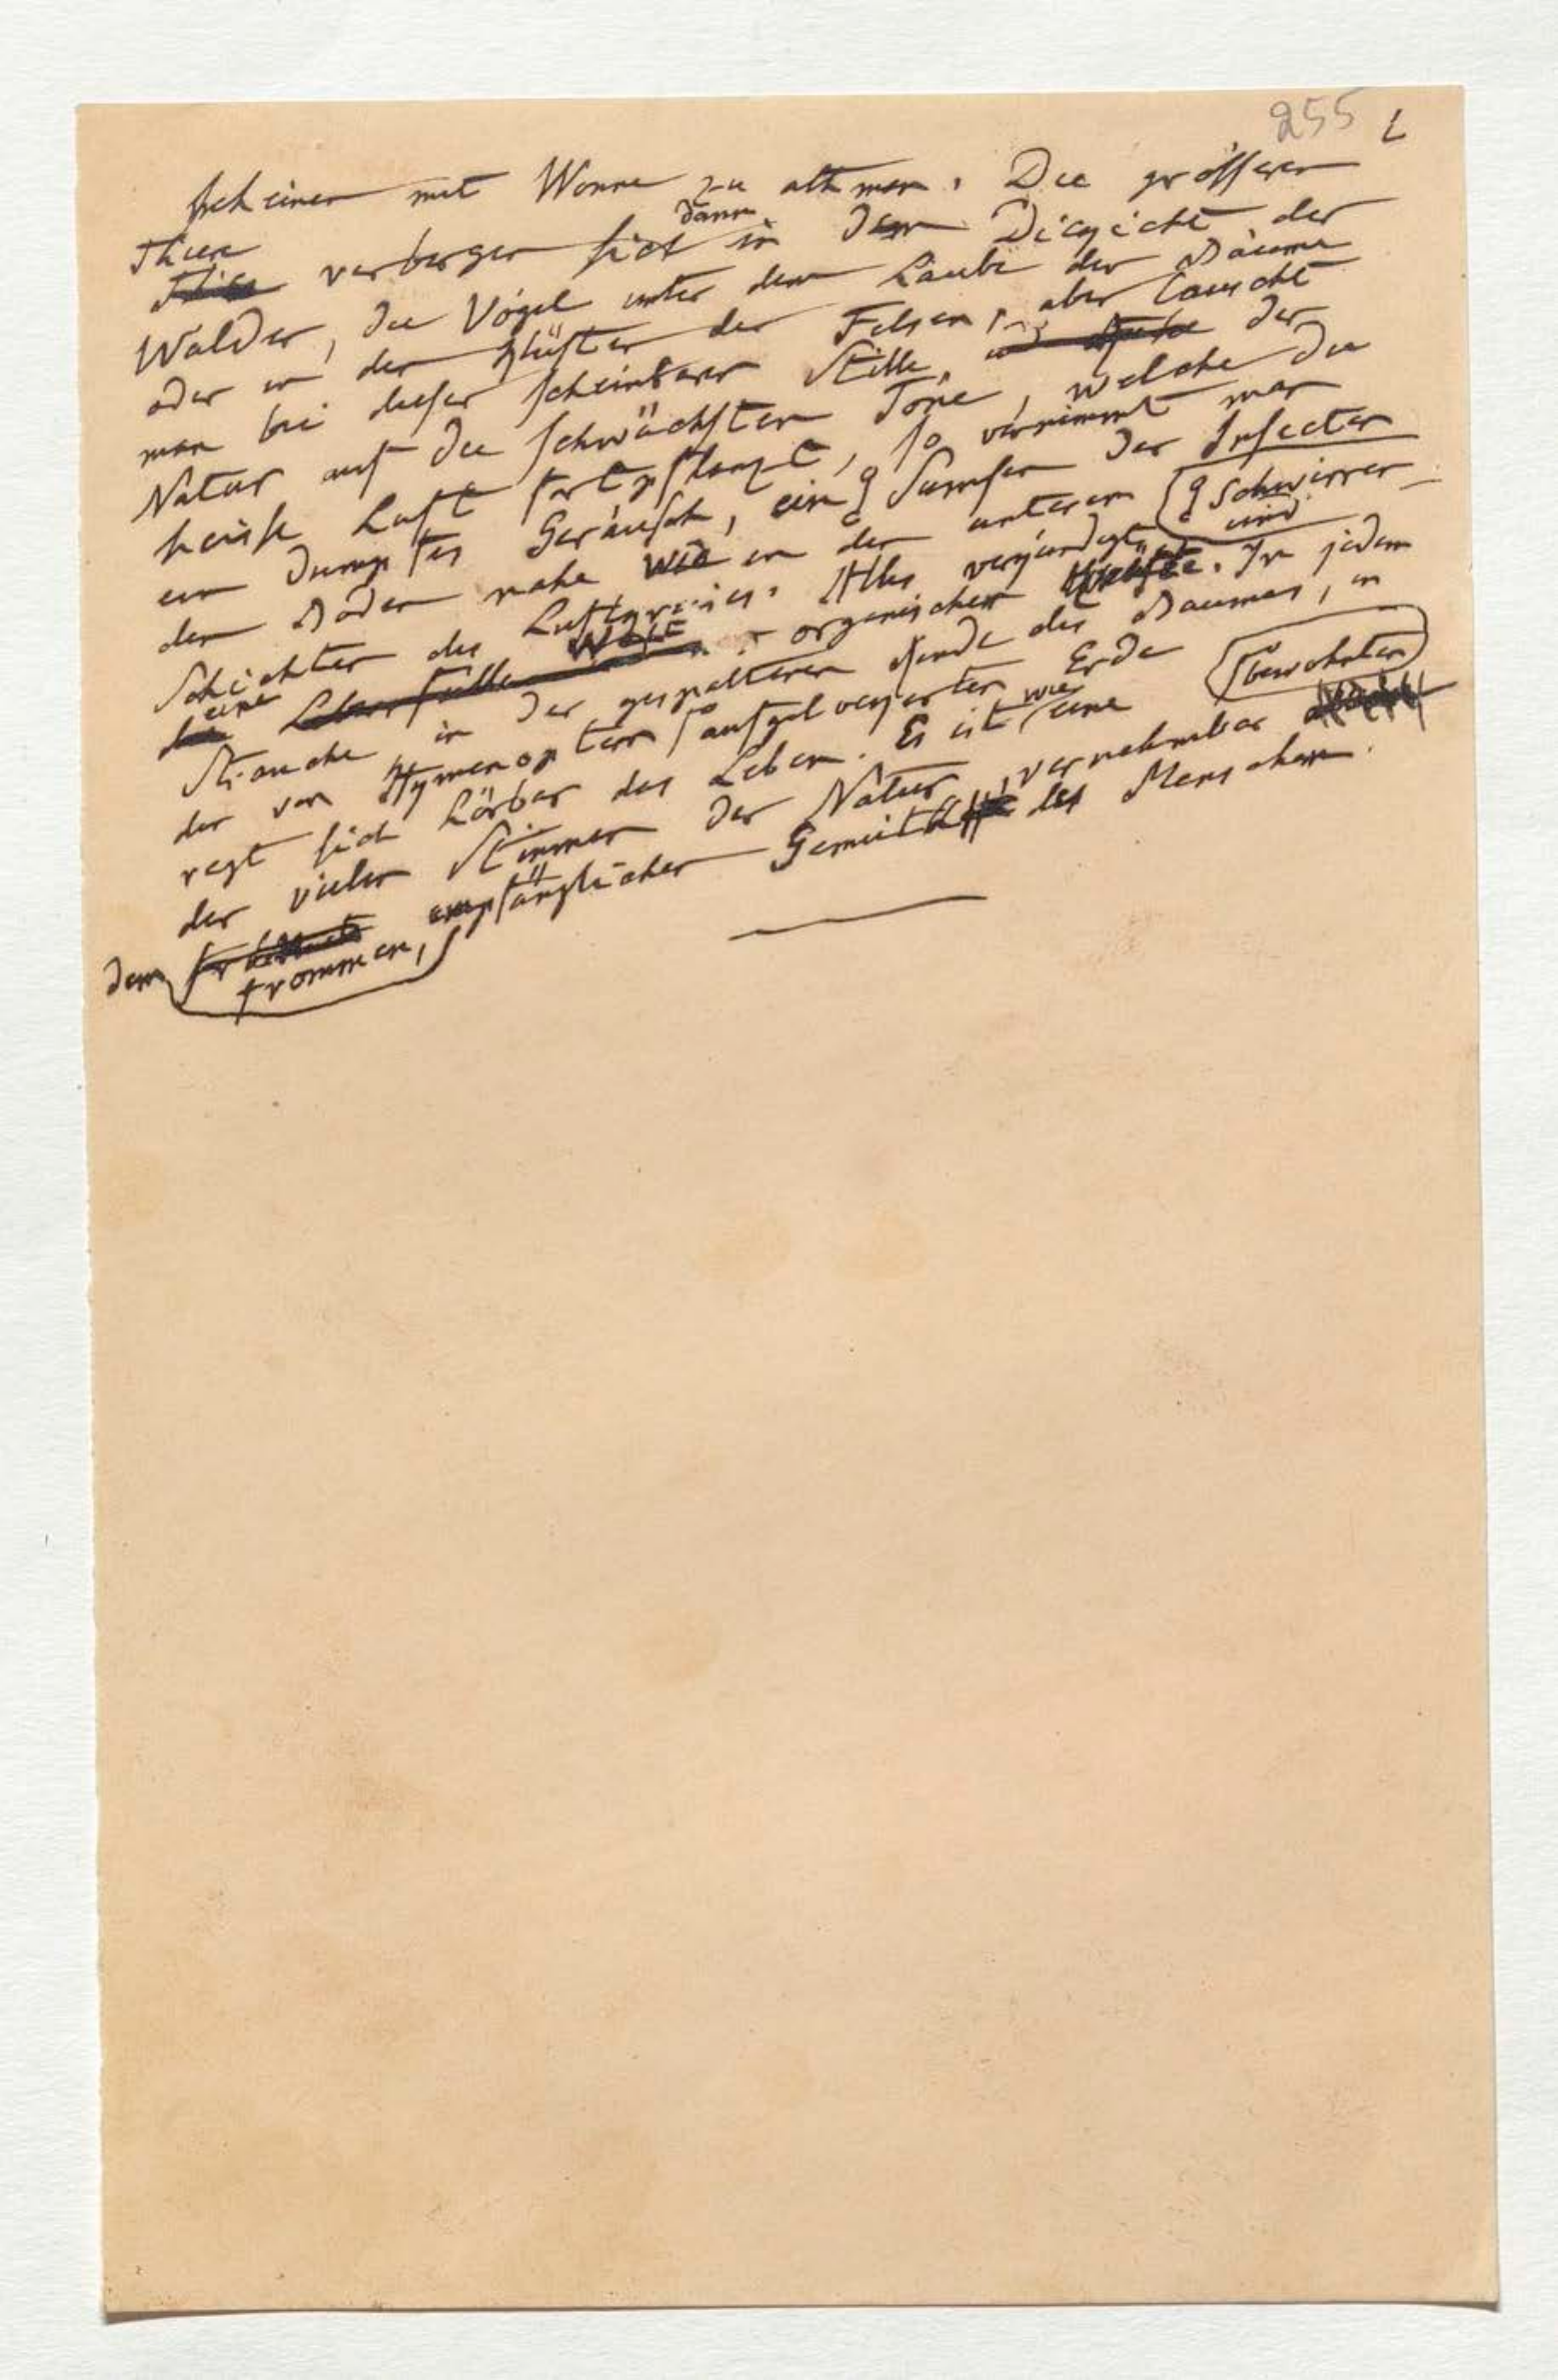 255
scheinen mit Wonne zu athmen. Die grösseren
Thiere verbergen sich dann in dem Dickicht der
Wälder, die Vögel unter dem Laube der Bäume
oder in den Klüften der Felsen, aber lauscht
man bei dieser scheinbaren Stille der
Natur auf die schwächsten Töne, welche die
heisse Luft fortpflanzt, so vernimmt man
ein dumpfes Geräusch, ein Schwirren und Sumsen der Insecten
dem Boden nahe wie in den unteren
Schichten des Luftkreises. Alles verkündigt
eine Welt organischer Kräfte. In jedem
Strauche in der gespaltenen Rinde des Baumes, in
der von Hymenoptern bewohnten aufgelockerten Erde
regt sich hörbar das Leben. Es ist wie eine
der vielen Stimmen der Natur, vernehmbar
dem frommen, empfänglichen Gemüthe des Menschen.